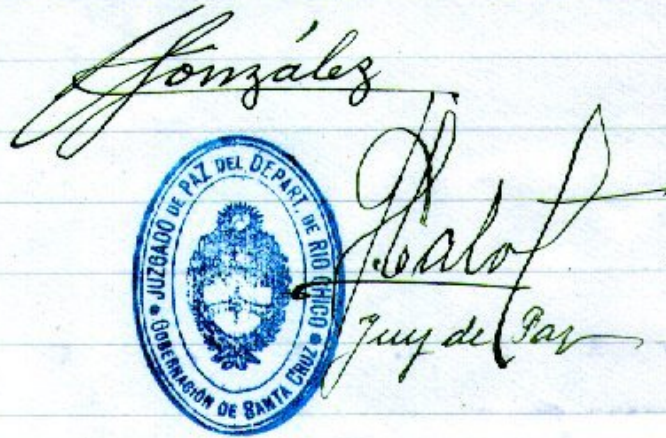 González
JUZGADO DE PAZ DEL DEPART. DE RIO CHICO
GOBERNACIÓN DE SANTA CRUZ
Juez de Paz